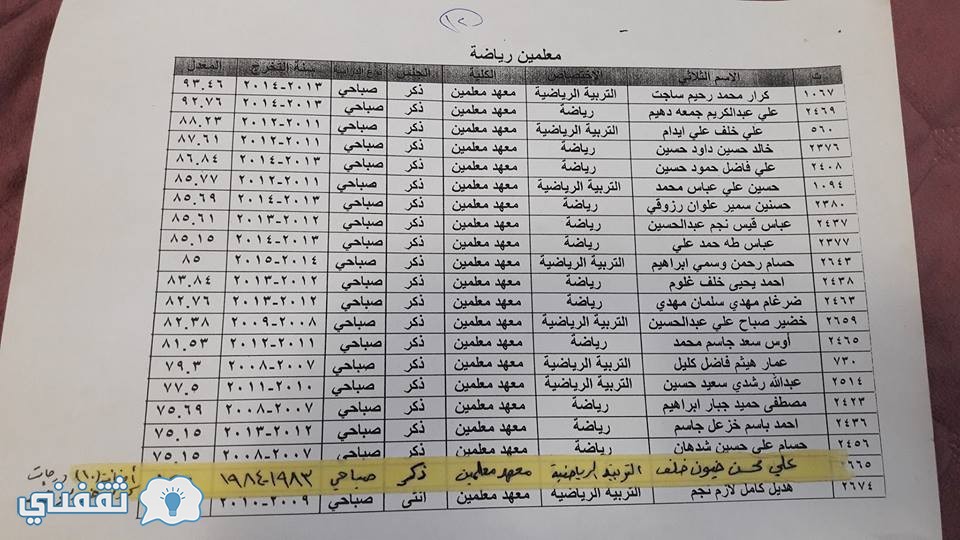 ١٢
معلمين رياضة
ت الاسم الثلاثي الإختصاص الكلية الجنس نوع الدراسة سنة التخرج المعدل
١٠٦٧ كرار محمد رحيم ساجت التربية الرياضية معهد معلمين ذكر صباحي ٢٠١٣-٢٠١٤ ٩٣.٤٦
٢٤٦٩ علي عبدالكريم جمعه دهيم رياضة معهد معلمين ذكر صباحي ٢٠١٣-٢٠١٤ ٩٢.٧٦
٥٦٠ علي خلف علي ايدام التربية الرياضية معهد معلمين ذكر صباحي ٢٠١١-٢٠١٢ ٨٨.٢٣
٢٣٧٦ خالد حسين داود حسين رياضة معهد معلمين ذكر صباحي ٢٠١١-٢٠١٢ ٨٧.٦١
٢٤٠٨ علي فاضل حمود حسين رياضة معهد معلمين ذكر صباحي ٢٠١٣-٢٠١٤ ٨٦.٨٤
١٠٩٤ حسين علي عباس محمد التربية الرياضية معهد معلمين ذكر صباحي ٢٠١١-٢٠١٢ ٨٥.٧٧
٢٣٨٠ حسنين سمير علوان رزوقي رياضة معهد معلمين ذكر صباحي ٢٠١٣-٢٠١٤ ٨٥.٦٩
٢٤٣٧ عباس قيس نجم عبدالحسين رياضة معهد معلمين ذكر صباحي ٢٠١٢-٢٠١٣ ٨٥.٦١
٢٣٧٧ عباس طه حمد علي رياضة معهد معلمين ذكر صباحي ٢٠١٣-٢٠١٤ ٨٥.١٥
٢٦٤٣ حسام رحمن وسمي ابراهيم التربية الرياضية معهد معلمين ذكر صباحي ٢٠١٤-٢٠١٥ ٨٥
٢٤٣٨ احمد يحيى خلف غلوم رياضة معهد معلمين ذكر صباحي ٢٠١٢-٢٠١٣ ٨٣.٨٤
٢٤٦٣ ضرغام مهدي سلمان مهدي رياضة معهد معلمين ذكر صباحي ٢٠١٢-٢٠١٣ ٨٢.٧٦
٢٦٥٩ خضير صباح علي عبدالحسين التربية الرياضية معهد معلمين ذكر صباحي ٢٠٠٨-٢٠٠٩ ٨٢.٣٨
٢٤٦٥ أوس سعد جاسم محمد رياضة معهد معلمين ذكر صباحي ٢٠١١-٢٠١٢ ٨١.٥٣
٧٣٠ عمار هيثم فاضل كليل التربية الرياضية معهد معلمين ذكر صباحي ٢٠٠٧-٢٠٠٨ ٧٩.٣
٢٥١٤ عبدالله رشدي سعيد حسين التربية الرياضية معهد معلمين ذكر صباحي ٢٠١٠-٢٠١١ ٧٧.٥
٢٤٢٣ مصطفى حميد جبار ابراهيم رياضة معهد معلمين ذكر صباحي ٢٠٠٧-٢٠٠٨ ٧٥.٦٩
٢٤٣٦ احمد باسم خزعل جاسم رياضة معهد معلمين ذكر صباحي ٢٠١٢-٢٠١٣ ٧٥.١٥
٢٤٥٦ حسام علي حسين شدهان رياضة معهد معلمين ذكر صباحي ٢٠٠٧-٢٠٠٨ ٧٥.١٥
٢٦٦٥ علي محسن خلف التربية الرياضية معهد معلمين ذكر صباحي ١٩٨٣-١٩٨٤
٢٦٧٤ هديل كامل لازم نجم التربية الرياضية معهد معلمين انثى صباحي ٢٠٠٩-٢٠١٠
ثقفني